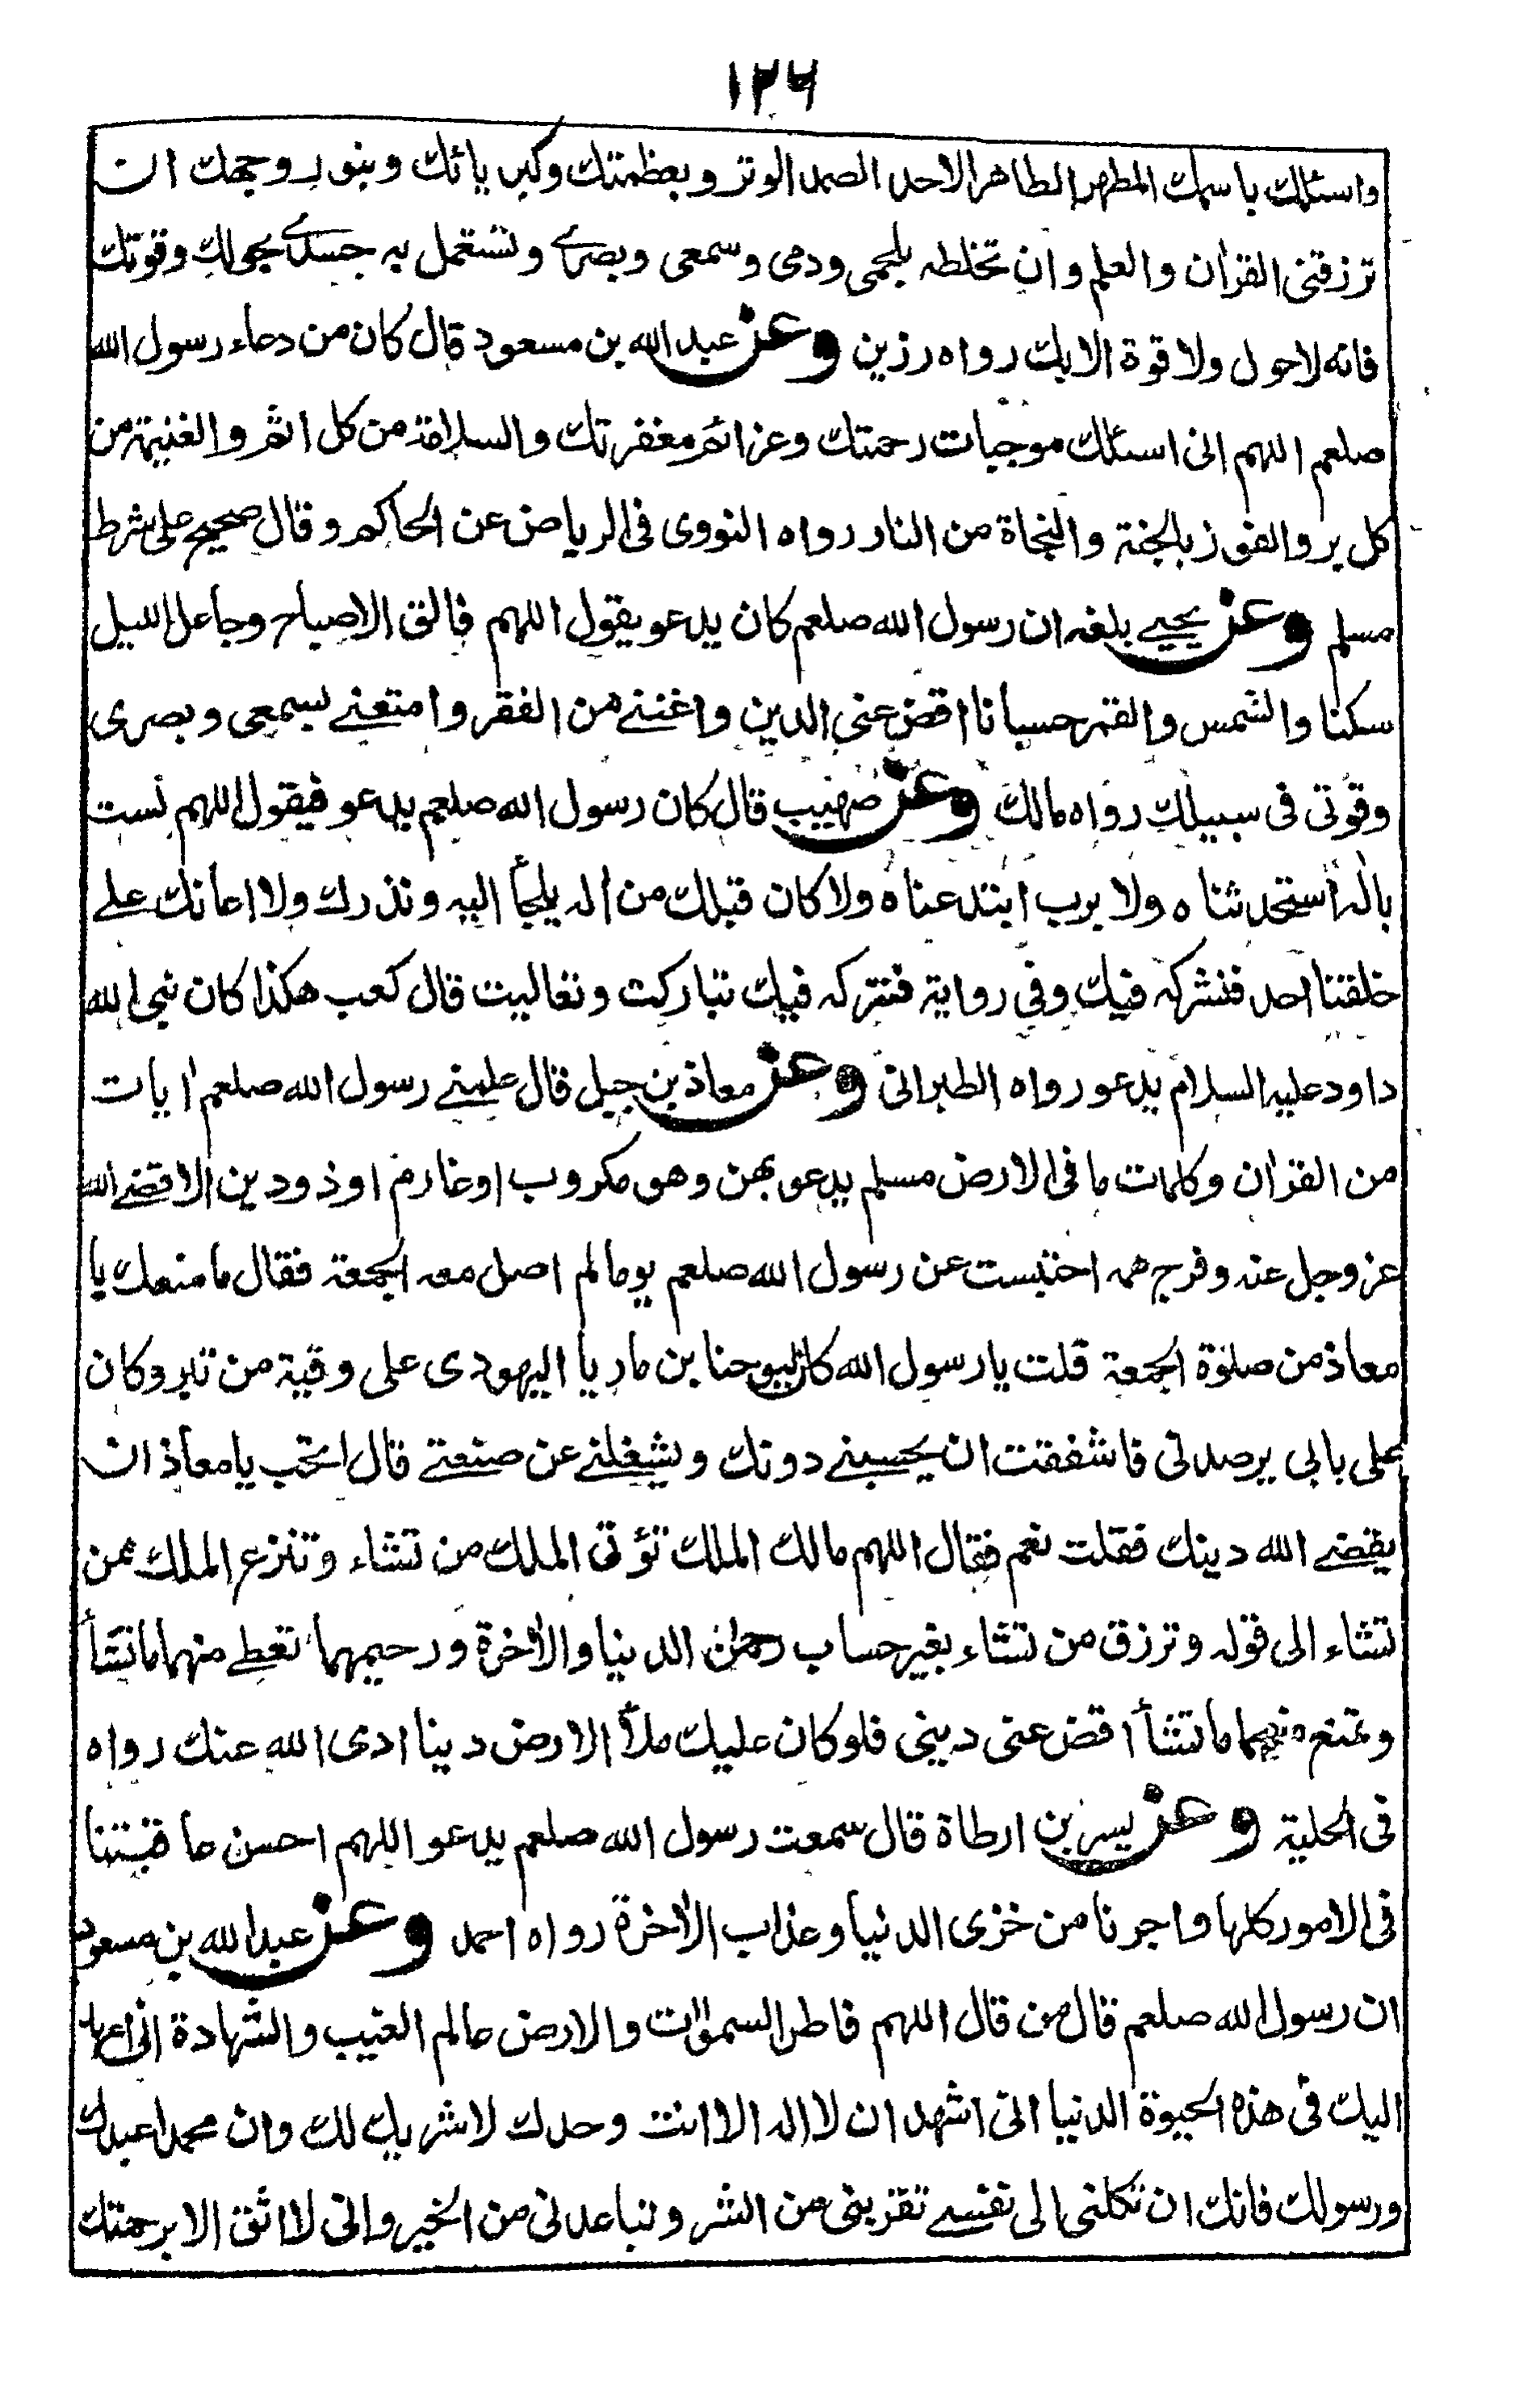 ١٢٦
واسئلك باسمك المطهر الطاهر الاحد الصمد الوتر وبعظمتك وكبريائك وبنور وجهك ان
ترزقنى القرآن والعلم وان تخلطه بلحمى ودمى وسمعى وبصرى وتستعمل به جسدى بحولك وقوتك
فانه لاحول ولا قوة الا بك رواه رزين وعن عبد الله بن مسعود قال كان من دعاء رسول الله
صلعم اللهم انى اسئلك موجبات رحمتك وعزائم مغفرتك والسلامة من كل اثم والغنيمة من
كل بر والفوز بالجنة والنجاة من النار رواه النووى فى الرياض عن الحاكم وقال صحيح على شرط
مسلم وعن يحيى بلغه ان رسول الله صلعم كان يدعو يقول اللهم فالق الاصباح وجاعل الليل
سكنا والشمس والقمر حسبانا اقض عنى الدين واغننى من الفقر وامتعنى بسمعى وبصرى
وقوتى فى سبيلك رواه مالك وعن صهيب قال كان رسول الله صلعم يدعو فيقول اللهم لست
باله استحدثناه ولا برب ابتدعناه ولا كان قبلك من اله يلجأ اليه ونذرك ولا اعانك على
خلقنا احد فنشركه فيك وفى رواية فنتركه فيك تباركت وتعاليت قال كعب هكذا كان نبى الله
داود عليه السلام يدعو رواه الطبرانى وعن معاذ بن جبل قال علمنى رسول الله صلعم آيات
من القرآن وكلمات ما فى الارض مسلم يدعو بهن وهو مكروب او غارم او ذو دين الا قضى الله
عز وجل عنه وفرج همه احتبست عن رسول الله صلعم يوما لم اصل معه الجمعة فقال ما منعك يا
معاذ من صلوة الجمعة قلت يا رسول الله كان ليوحنا بن ماريا اليهودى على وقية من تبر وكان
على بابى يرصدنى فاشفقت ان يحبسنى دونك ويشغلنى عن صنعتى قال اتحب يا معاذ ان
يقضى الله دينك فقلت نعم فقال اللهم مالك الملك تؤتى الملك من تشاء وتنزع الملك ممن
تشاء الى قوله وترزق من تشاء بغير حساب رحمن الدنيا والآخرة ورحيمهما تعطى منهما ما تشأ
وتمنع منهما ما تشأ اقض عنى دينى فلو كان عليك ملأ الارض دينا ادى الله عنك رواه
فى الحلية وعن بسر بن ارطاة قال سمعت رسول الله صلعم يدعو اللهم احسن عاقبتنا
فى الامور كلها واجرنا من خزى الدنيا وعذاب الآخرة رواه احمد وعن عبد الله بن مسعود
ان رسول الله صلعم قال من قال اللهم فاطر السموات والارض عالم الغيب والشهادة انى اعهد
اليك فى هذه الحيوة الدنيا انى اشهد ان لا اله الا انت وحدك لا شريك لك وان محمدا عبدك
ورسولك فانك ان تكلنى الى نفسى تقربنى من الشر وتباعدنى من الخير وانى لا اثق الا برحمتك